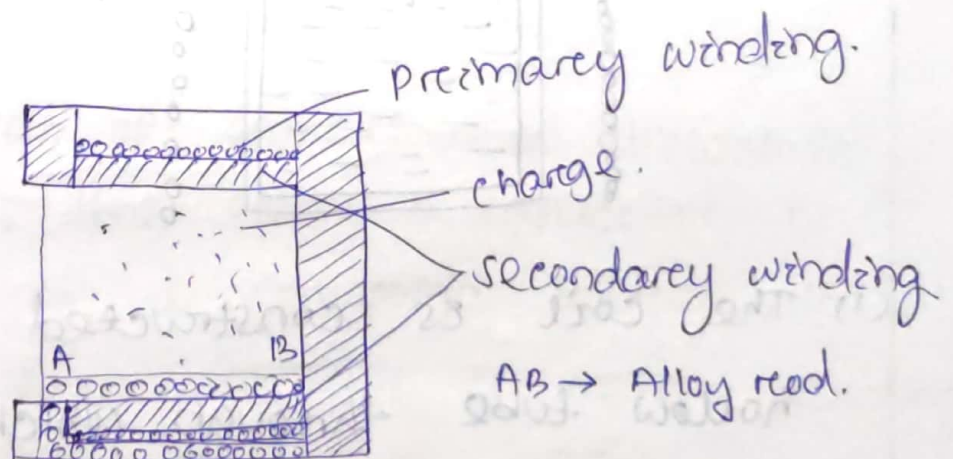 Preimarey winding.
charge.
secondarey winding
A B
AB → Alloy reod.